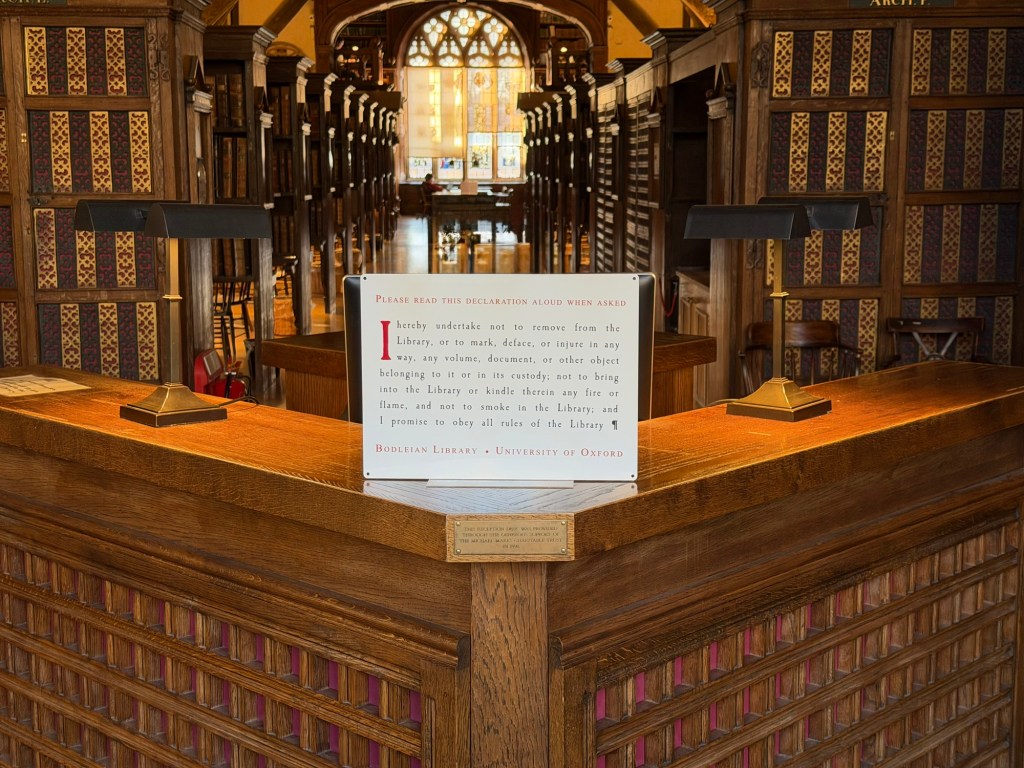 ARCH. F.
PLEASE READ THIS DECLARATION ALOUD WHEN ASKED
I hereby undertake not to remove from the
Library, or to mark, deface, or injure in any
way, any volume, document, or other object
belonging to it or in its custody; not to bring
into the Library or kindle therein any fire or
flame, and not to smoke in the Library; and
I promise to obey all rules of the Library ¶
BODLEIAN LIBRARY • UNIVERSITY OF OXFORD
THIS RECEPTION DESK WAS PROVIDED
THROUGH THE GENEROUS SUPPORT OF
THE MICHAEL MARKS CHARITABLE TRUST